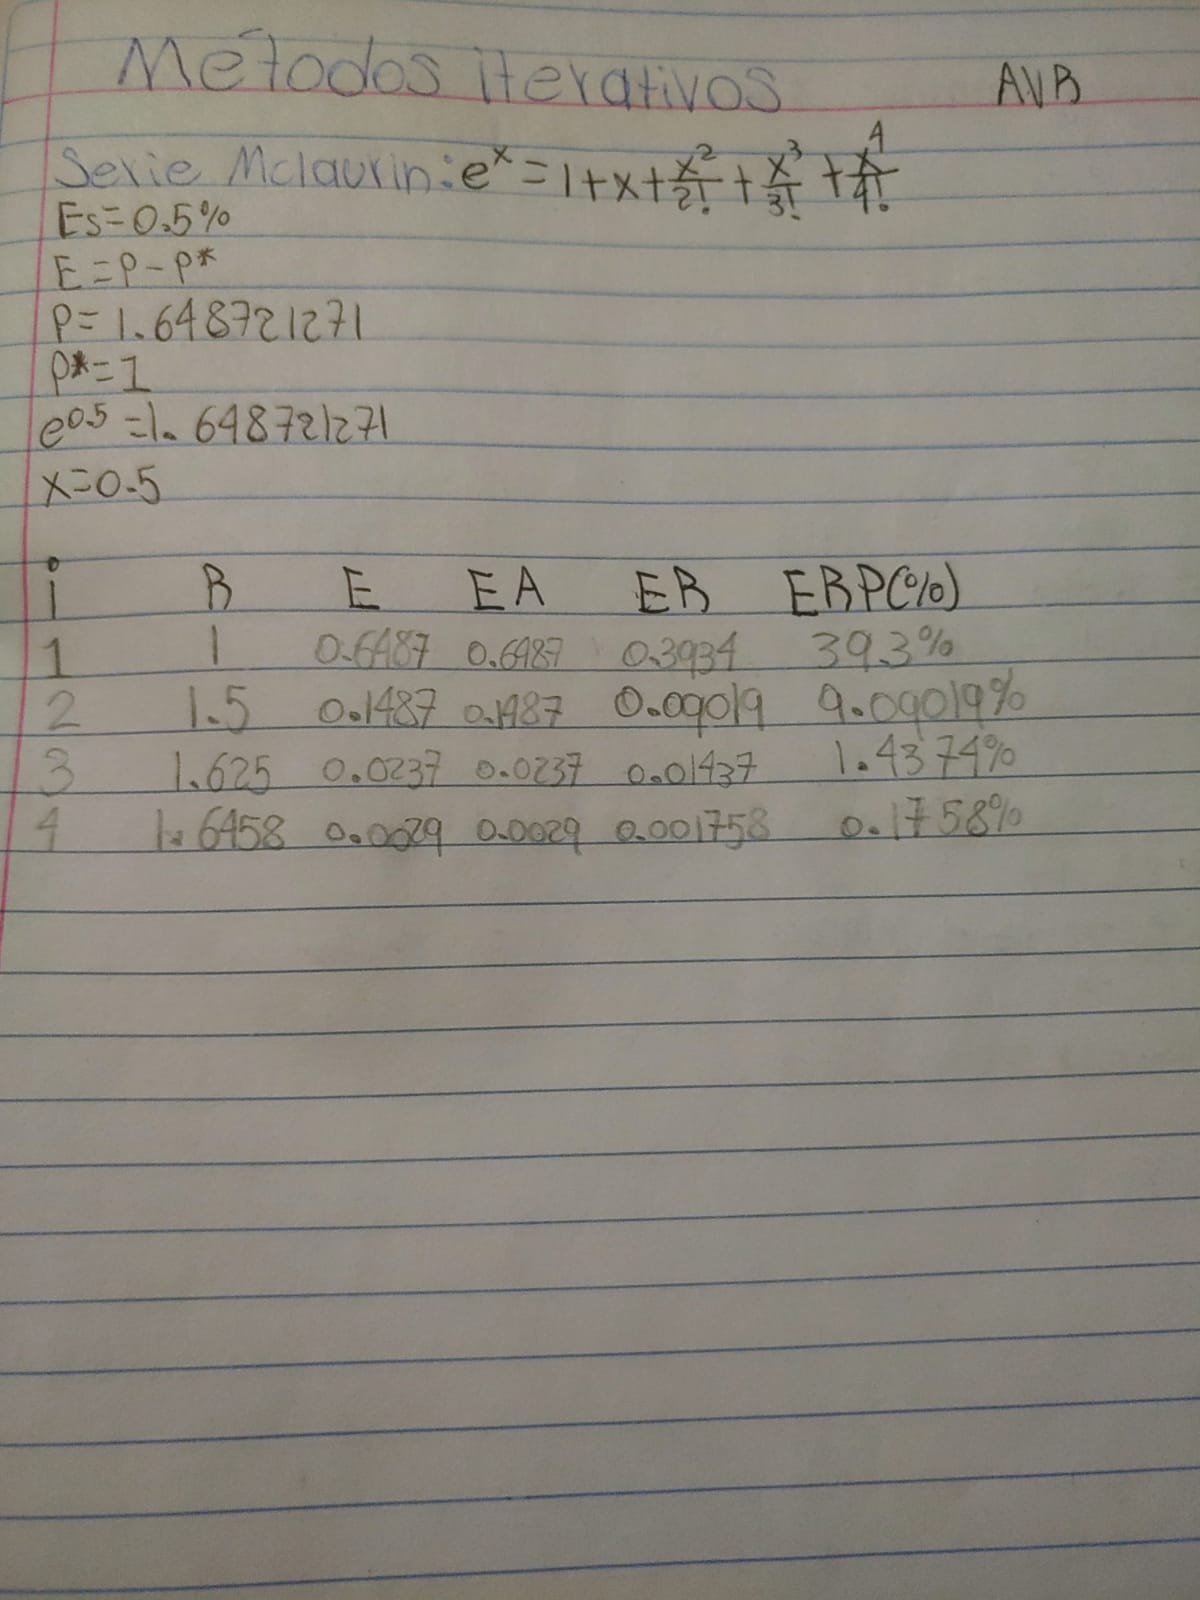 Métodos iterativos AVR
Serie Mclaurin: e^x = 1+x+x^2/2! + x^3/3! + x^4/4!
Es=0.5%
E=P-P*
P=1.648721271
P*=1
e^0.5 =1.648721271
x=0.5
i R E EA ER ERP(%)
1 1 0.6487 0.6487 0.3934 39.3%
2 1.5 0.1487 0.1487 0.09019 9.09019%
3 1.625 0.0237 0.0237 0.01437 1.4374%
4 1.6458 0.0029 0.0029 0.001758 0.1758%